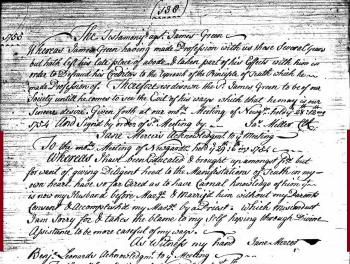 (138)
1753 The Testamony agt. James Green
Whereas James Green having made Profession with us these Several years
but hath left his late place of abode & taken part of his Effects with him in
order to Defraud his Creditors to the Reproach of the Principle of Truth which he
made Profession of. Therefore we disown the sd. James Green to be of our
Society untill he comes to see the Evil of his ways which that he may is our
Sincere desire. Given forth at our moly. Meeting of
1754 And Signed by order of sd. Meeting by Miller Clk
Jane Mercer's Acknowledgment to Meeting
To the moly. Meeting of 1754
Whereas I have been Educated & brought up amongst frds. but
for want of giving Diligent heed to the Manifestations of Truth in my
own heart have so far Erred as to have Carnal knowledge of him yt.
is now my Husband before Marge. & Married him without my Parents
Consent & Accomplisht my Marge. by a Priest which Misconduct
I am Sorry for & takes the blame to my Self hoping through Divine
Assistance to be more careful of my ways
As Witness my hand Jane Mercer
Benjn. Leonards Acknowledgmt. to ye Meeting